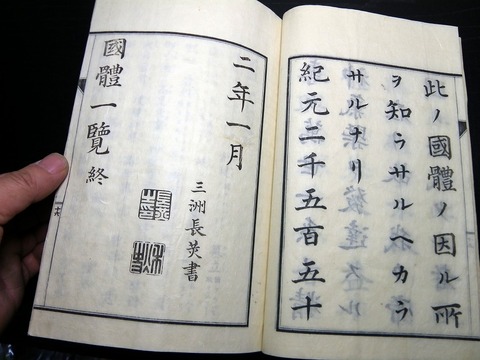 此ノ國體ノ因ル所
ヲ知ラサルヘカラ
サルナリ
紀元二千五百五十
二年一月
三洲長炗書
國體一覽終